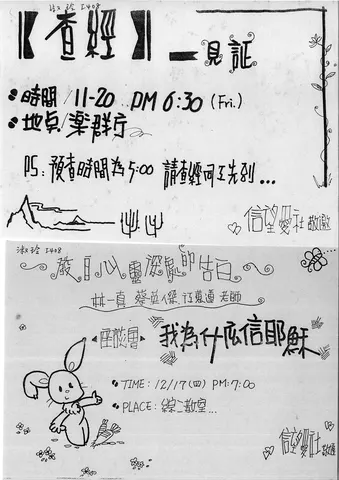 淑玲 I408
【查經】—見証
時間/11-20 PM 6:30 (Fri.)
地點/樂群廳
PS: 預查時間為5:00 請查經同工先到...
信望愛社 敬邀
淑玲 I408
發自心靈深處的告白
林一真 老師
座談會 我為什麼信耶穌
TIME: 12/17(四) PM:7:00
PLACE: 綜二教室...
信望愛社 敬邀